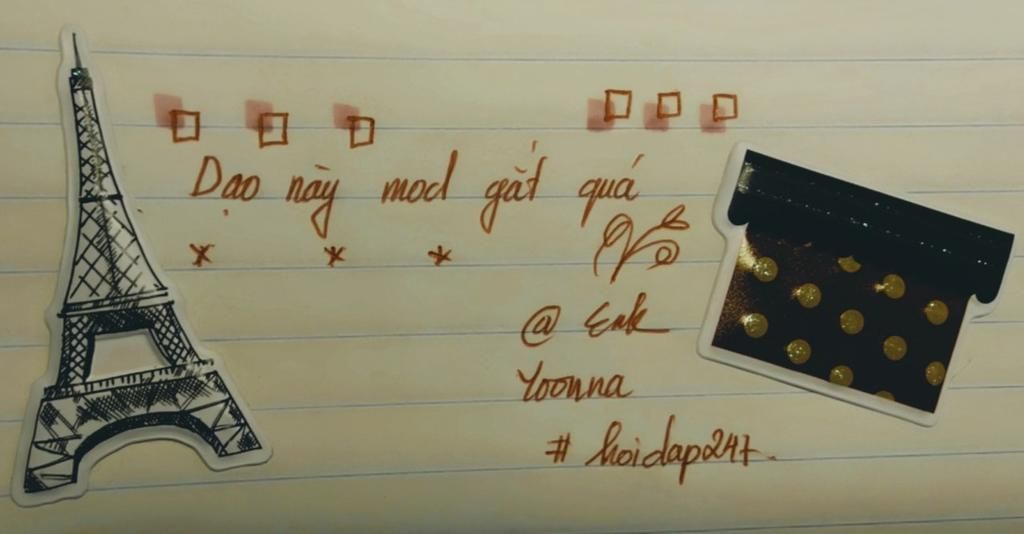 Dạo này mod gắt quá
* * *
@ Enk
Yoonna
# hoidap247.